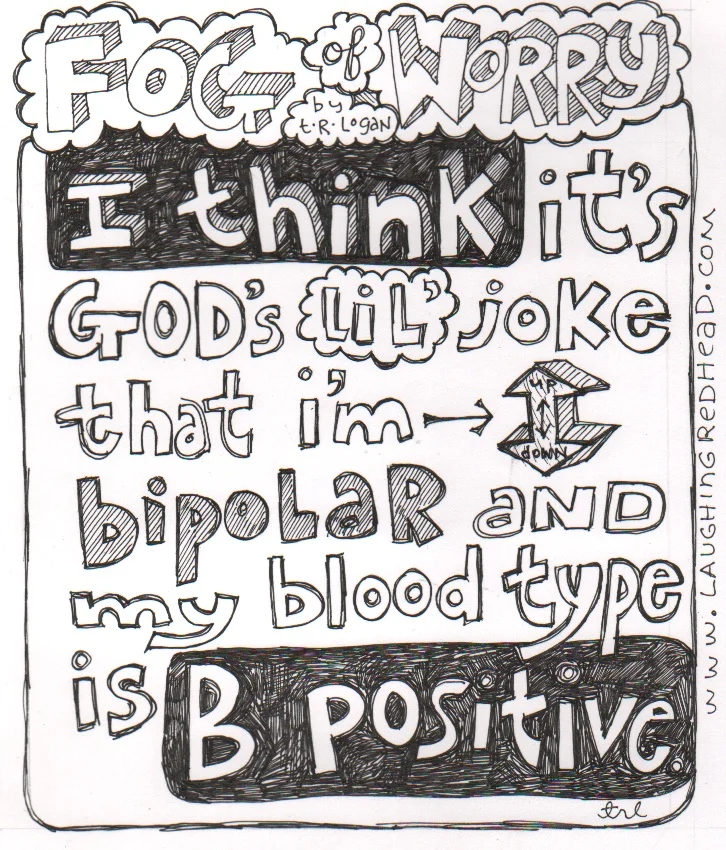 FOG of WORRY
by
t.R. LOGAN
I think it's
GOD's LiL' joke
that i'm
UP
down
bipolaR AND
my blood type
is B positive.
trl
www.LAUGHiNGREDHEAD.COM